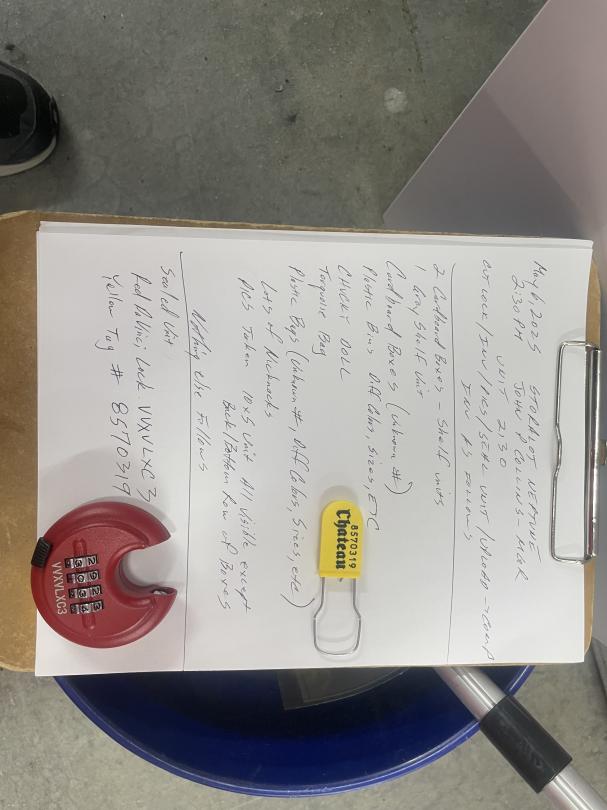 May 6, 2025 STORALOT NEPTUNE
2:30 PM JOHN P COLLINS - MGR
UNIT 230
CUT LOCK / INV / PICS / SEAL UNIT / UPLOAD → COMP
INV AS FOLLOWS
2 Cardboard Boxes - Shelf units
1 Gray Shelf Unit
Cardboard Boxes (Unknown #)
Plastic Bins Diff Colors, Sizes, ETC
CHUCKY DOLL
Torquoise Bag
Plastic Bags (Unknown #, Diff Colors, Sizes, etc)
Lots of Nicknacks
PICS Taken 10x5 Unit All Visible except
Back/Bottom Row of Boxes
Nothing Else Follows
Sealed Unit
Red DaVinci Lock VVXVLXC3
Yellow Tag # 8570319
8570319
Chateau
VVXVLXC3